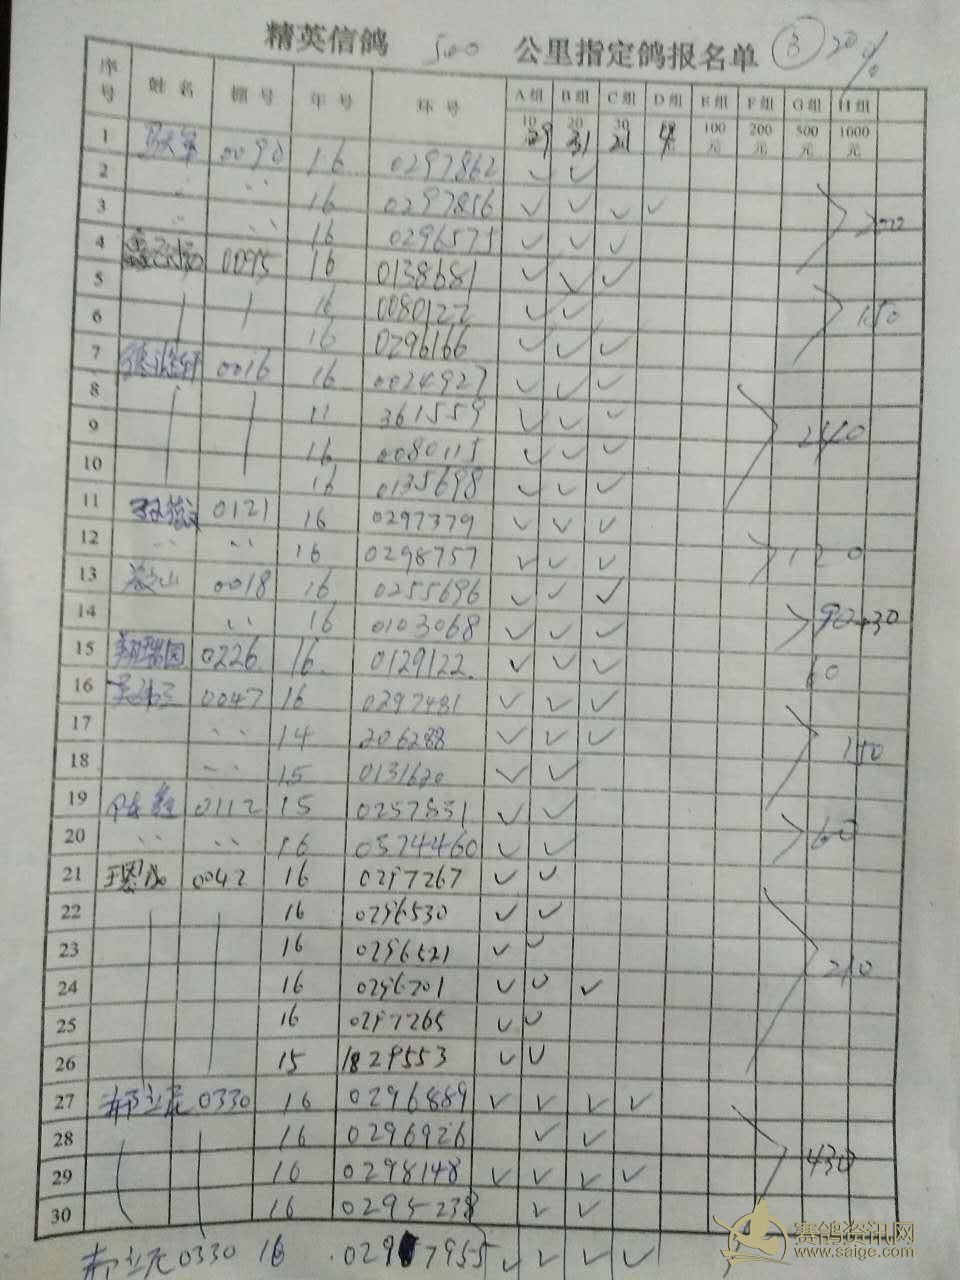 精英信鸽 500 公里指定鸽报名单 ③ 20%
序号 姓名 棚号 年号 环号 A组 B组 C组 D组 E组 F组 G组 H组
10 29 20 31 30 21 4 100元 200元 500元 1000元
1 0090 16 0297862 ✓ ✓
2 〃 〃 16 0297856 ✓ ✓ ✓ ✓
3 〃 〃 16 0296575 ✓ ✓ ✓
4 0095 16 0138681 ✓ ✓ ✓
5 16 0080122 ✓ ✓ 150
6 16 0296166 ✓ ✓ ✓
7 0016 16 0024927 ✓ ✓ ✓
8 11 361559 ✓ ✓ ✓
9 16 0080115 ✓ ✓ ✓ 240
10 16 0135698 ✓ ✓ ✓
11 0121 16 0297379 ✓ ✓ ✓
12 〃 〃 16 0298757 ✓ ✓ ✓ 120
13 0018 16 0255696 ✓ ✓ ✓
14 〃 16 0103068 ✓ ✓ ✓
15 翔瑞园 0226 16 0129122 ✓ ✓ ✓ 60
16 0047 16 0297481 ✓ ✓ ✓
17 〃 14 206288 ✓ ✓ ✓ 150
18 〃 15 0131620 ✓ ✓
19 0112 15 0257831 ✓ ✓
20 〃 〃 16 0574460 ✓ ✓ 60
21 0042 16 0297267 ✓ ✓
22 16 0296530 ✓ ✓
23 16 0296521 ✓ ✓
24 16 0296701 ✓ ✓ ✓ 210
25 16 0297265 ✓ ✓
26 15 1829553 ✓ ✓
27 0330 16 0296889 ✓ ✓ ✓ ✓
28 16 0296926 ✓ ✓
29 16 0298148 ✓ ✓ ✓ ✓ 430
30 16 0295238 ✓ ✓
0330 16 0297955 ✓ ✓ ✓ ✓
赛鸽资讯网
www.saige.com